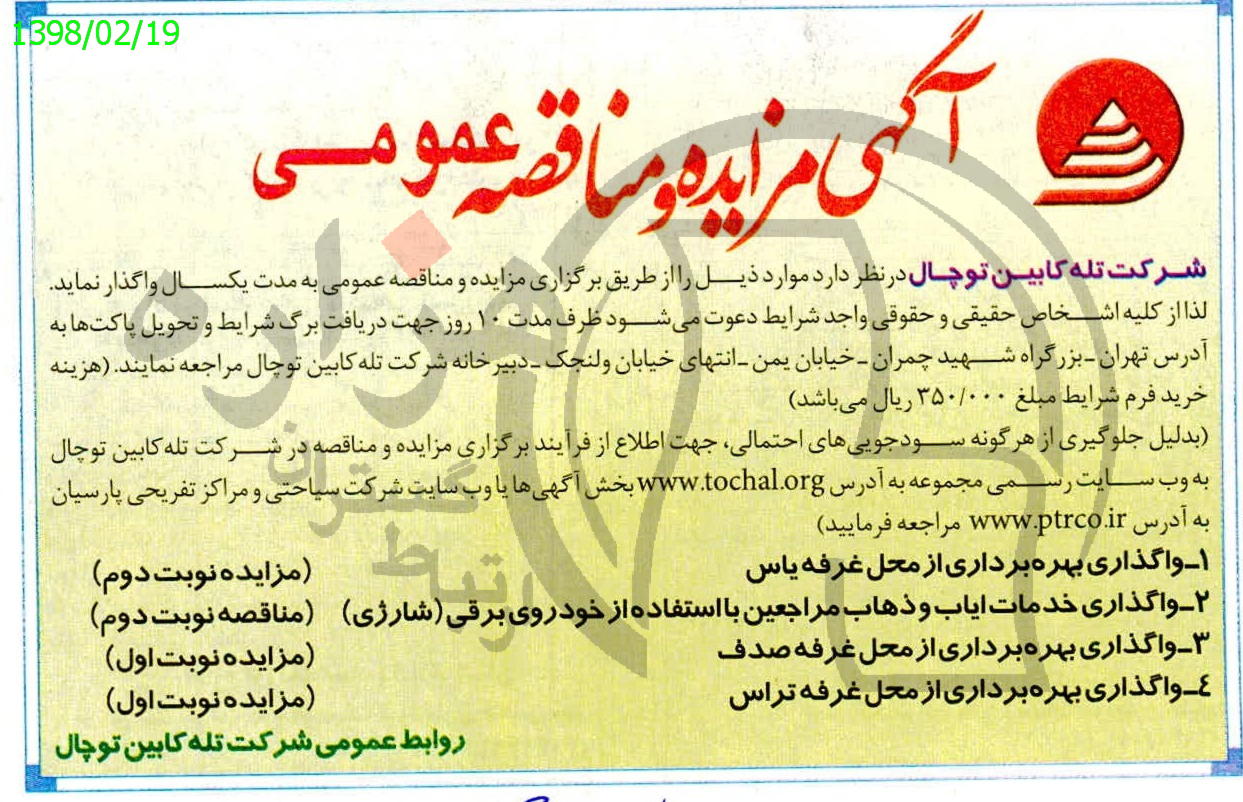 1398/02/19
آگهی مزایده و مناقصه عمومی
شرکت تله کابین توچال درنظر دارد موارد ذیل را از طریق برگزاری مزایده و مناقصه عمومی به مدت یکسال واگذار نماید.
لذا از کلیه اشخاص حقیقی و حقوقی واجد شرایط دعوت می‌شود ظرف مدت ۱۰ روز جهت دریافت برگ شرایط و تحویل پاکت‌ها به
آدرس تهران ـ بزرگراه شهید چمران ـ خیابان یمن ـ انتهای خیابان ولنجک ـ دبیرخانه شرکت تله کابین توچال مراجعه نمایند. (هزینه
خرید فرم شرایط مبلغ ۳۵۰/۰۰۰ ریال می‌باشد)
(بدلیل جلوگیری از هرگونه سودجویی‌های احتمالی، جهت اطلاع از فرآیند برگزاری مزایده و مناقصه در شرکت تله کابین توچال
به وب سایت رسمی مجموعه به آدرس www.tochal.org بخش آگهی‌ها یا وب سایت شرکت سیاحتی و مراکز تفریحی پارسیان
به آدرس www.ptrco.ir مراجعه فرمایید)
۱ـ واگذاری بهره‌برداری از محل غرفه یاس (مزایده نوبت دوم)
۲ـ واگذاری خدمات ایاب و ذهاب مراجعین با استفاده از خودروی برقی (شارژی) (مناقصه نوبت دوم)
۳ـ واگذاری بهره‌برداری از محل غرفه صدف (مزایده نوبت اول)
٤ـ واگذاری بهره‌برداری از محل غرفه تراس (مزایده نوبت اول)
روابط عمومی شرکت تله کابین توچال
هزاره
گستران
ارتباط